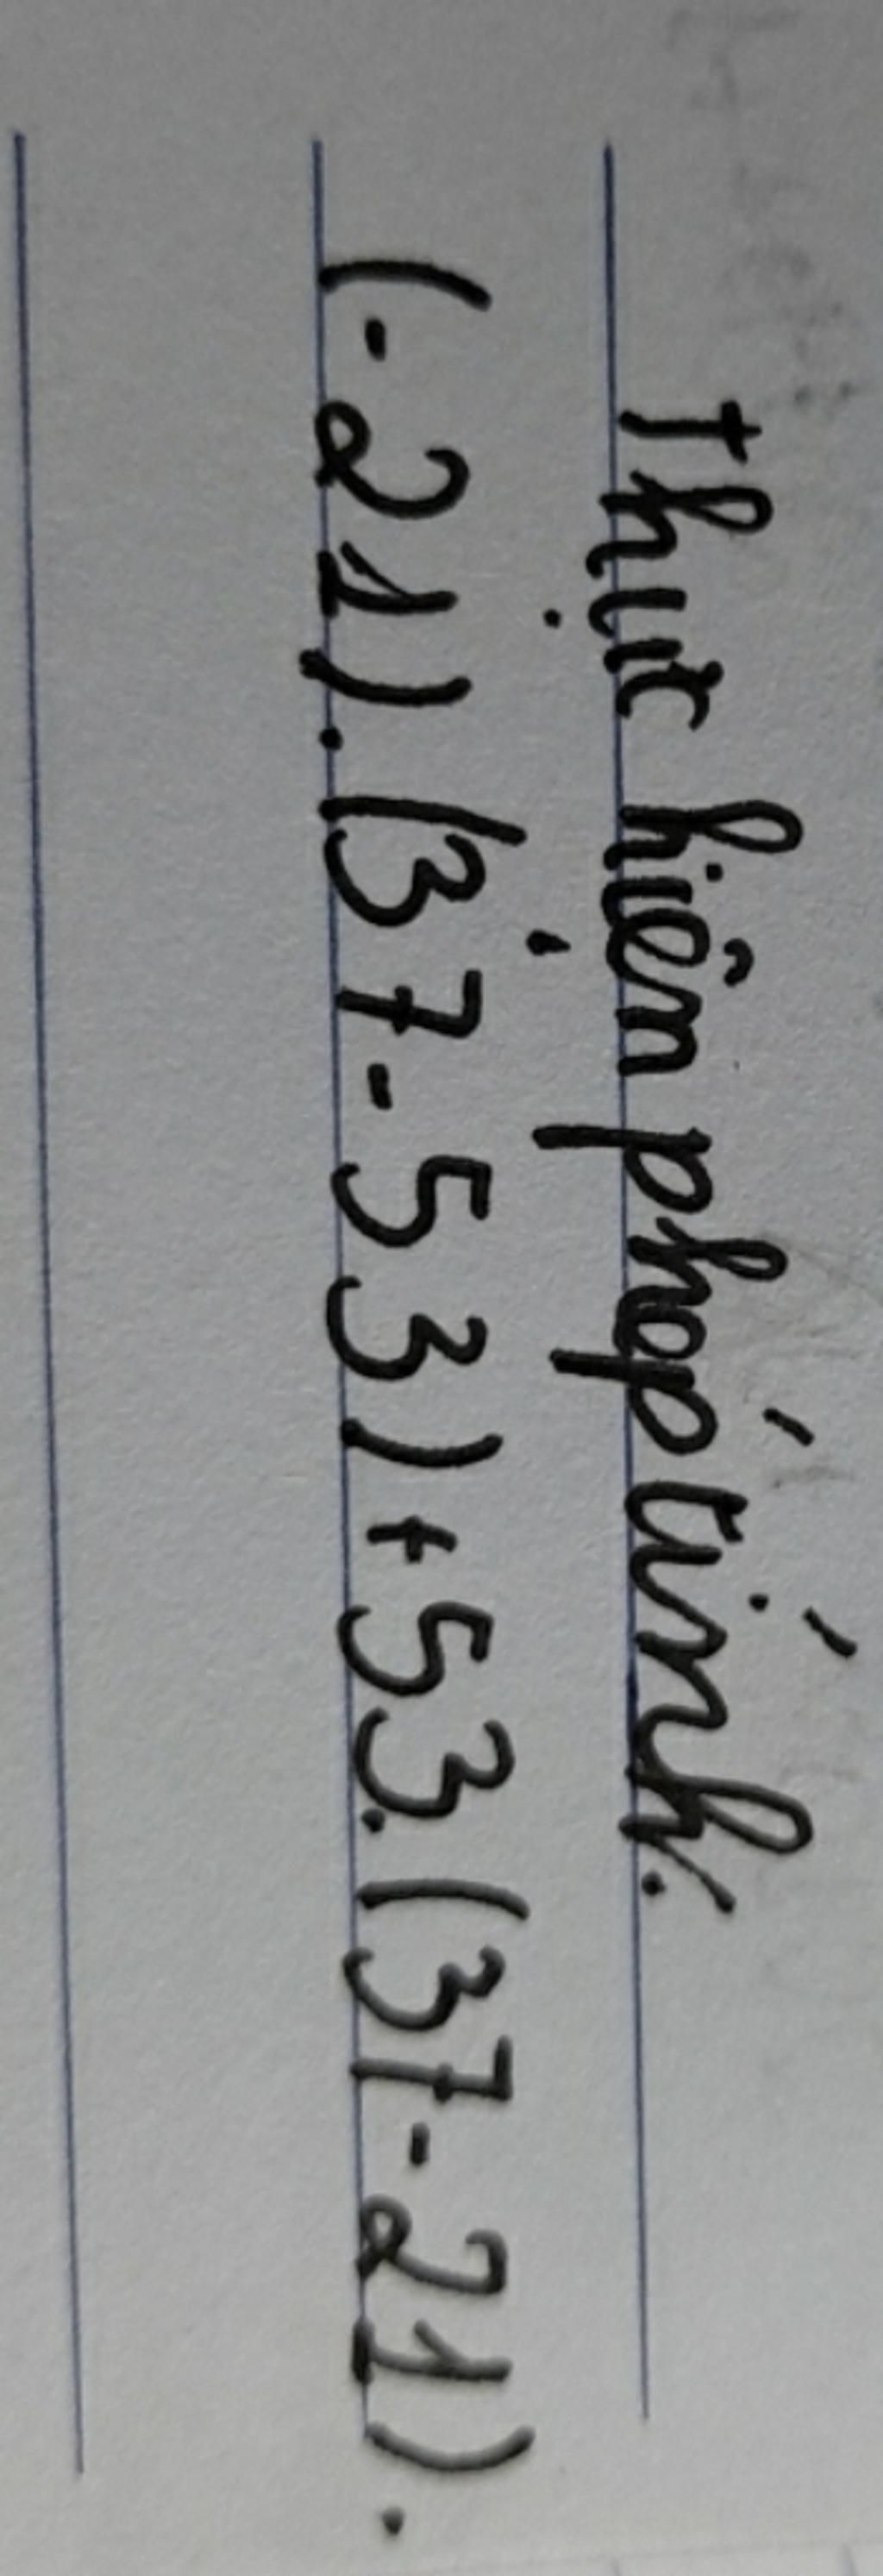 Thực hiện phép tính:
(-21).(37-53)+53.(37-21).